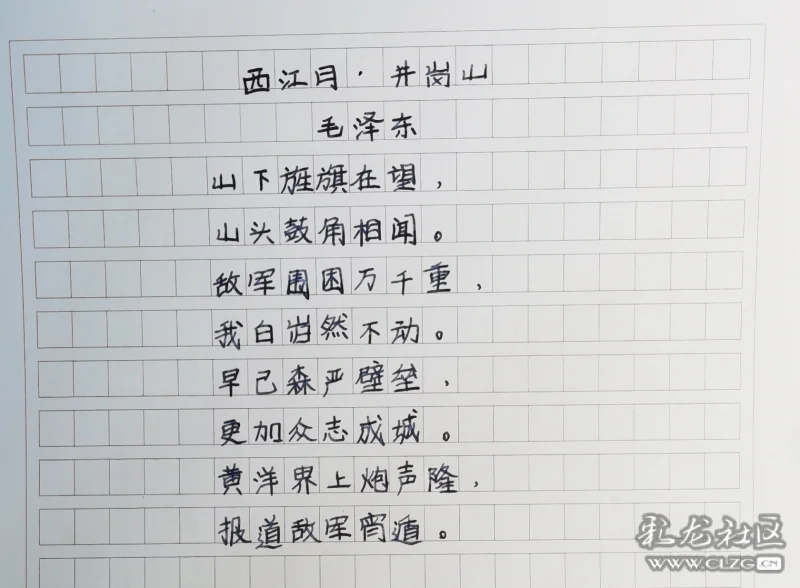 西江月·井岗山
毛泽东
山下旌旗在望，
山头鼓角相闻。
敌军围困万千重，
我自岿然不动。
早已森严壁垒，
更加众志成城。
黄洋界上炮声隆，
报道敌军宵遁。
乳龙社区
WWW.CLZG.CN